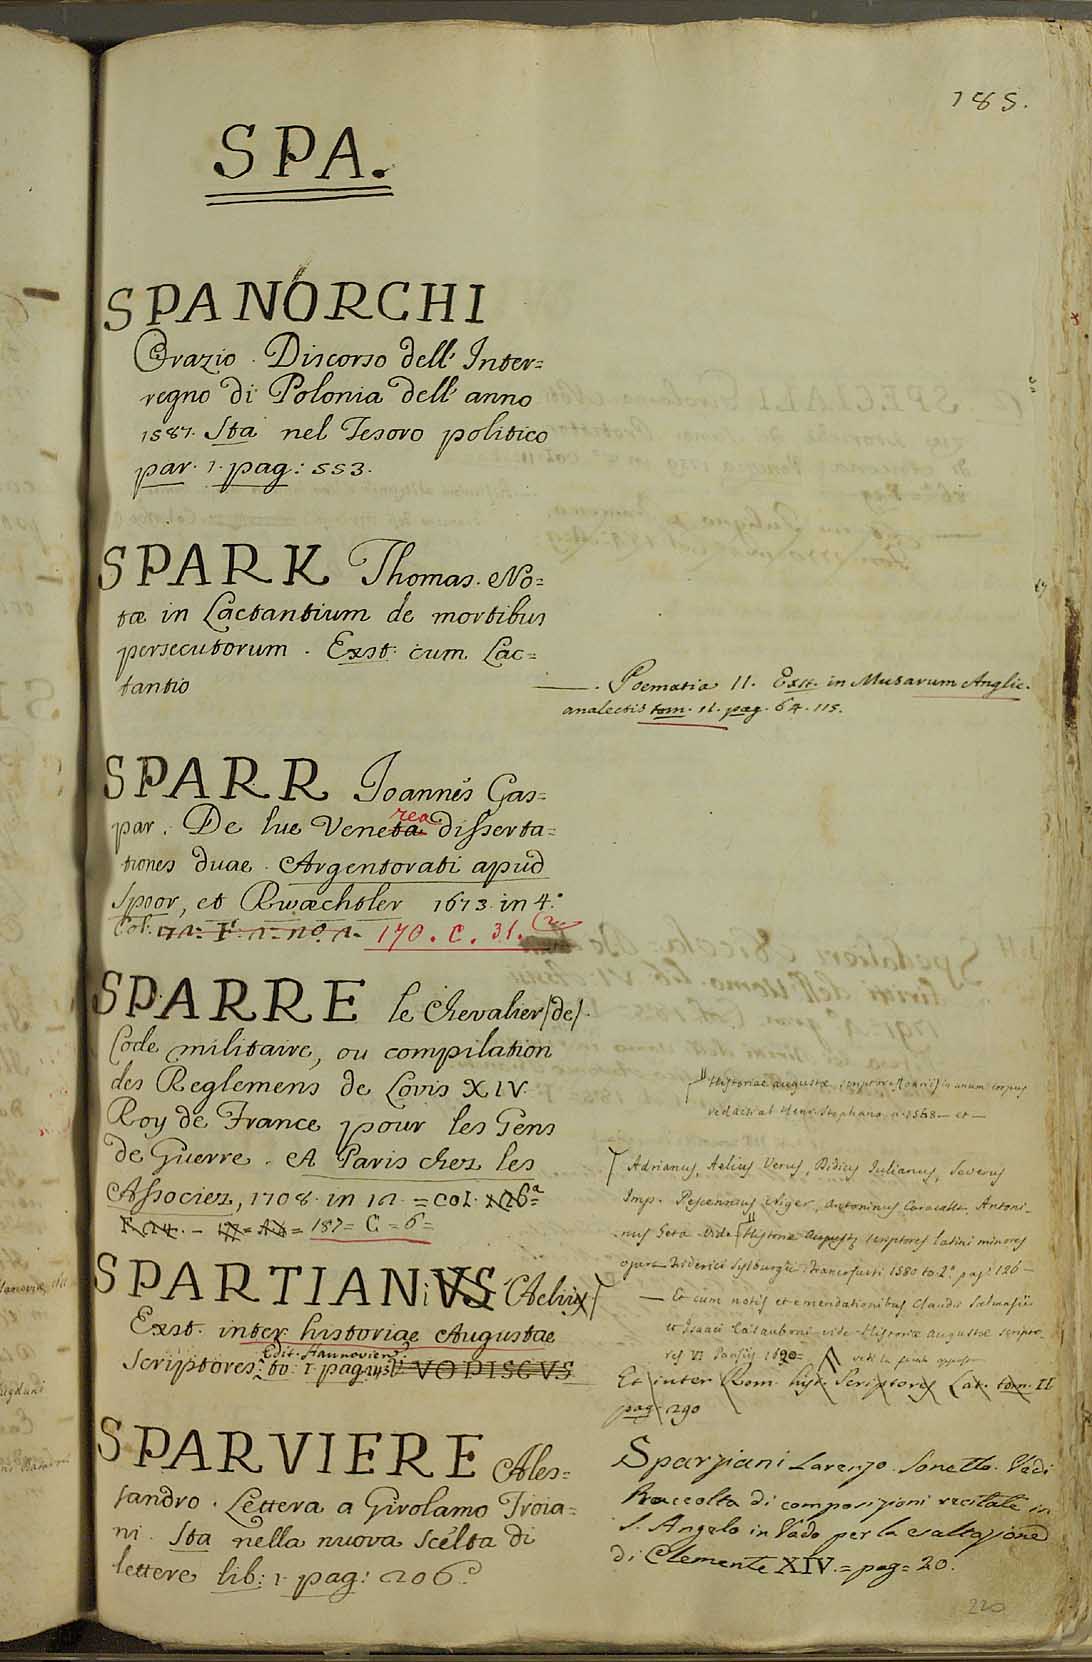 185.
SPA.
SPANORCHI
Orazio. Discorso dell' Inter=
regno di Polonia dell' anno
1587. Sta nel Tesoro politico
par. 1. pag: 553.
SPARK Thomas. No=
tæ in Lactantium de mortibus
persecutorum. Exst. cum Lac=
tantio
—. Poematia II. Exst. in Musarum Anglic.
analectis tom. II. pag. 64. 115.
SPARR Joannes Gas=
par. De lue Veneta rea disserta=
tiones duae. Argentorati apud
Spoor, et Rwæchtler 1673. in 4.°
Col. 170. C. 31.
SPARRE le Chevalier (de).
Code militaire, ou compilation
des Reglemens de Lovis XIV.
Roy de France pour les Gens
de Guerre. A Paris chez les
Associez, 1708. in 12. = COL.
187= C = 6=
SPARTIANi VS Aelius
Exst. inter historiae Augustae
Edit. Hannoviens:
Scriptores to: 1. pag: VOPISCVS
Historiae augustæ scriptores in unum corpus
redacti ab Henr. Stephano a. 1568 — et —
Adrianus, Aelius Verus, Didius Julianus, Severus
Imp. Pescennius Niger, Antoninus Caracalla, Antoni-
nus Geta. Vide Historiæ Augustæ scriptores latini minores
opera Friderici Sylburgii Francofurti 1580 to. 2.° pag: 126 —
— Et cum notis et emendationibus Claudii Salmasii
et Isaaci Casauboni vide Historiæ augustæ scripto-
res VI Parisiis 1620=
Et inter Rom. hist. Scriptores Lat. tom. II
pag. 290
SPARVIERE Ales=
sandro. Lettera a Girolamo Troia=
ni. Sta nella nuova Scelta di
lettere lib: 1. pag: 206.
Sparziani Lorenzo. Sonetto. Vedi
Raccolta di composizioni recitate in
S. Angelo in Vado per la esaltazione
di Clemente XIV. = pag = 20.
220